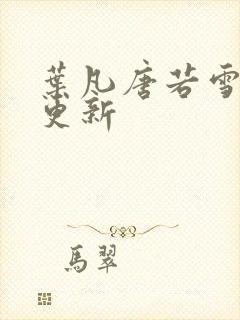 葉凡唐若雪
更新
馬翠